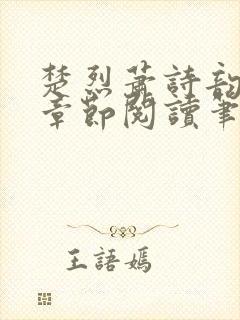 楚烈蕭詩韵
章節閱讀筆
王語嫣